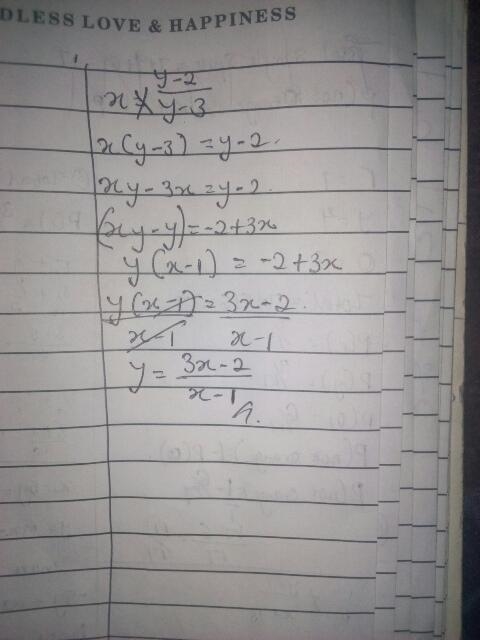 DLESS LOVE & HAPPINESS
x = \frac{y-2}{y-3}
x(y-3) = y-2.
xy - 3x = y-2.
(xy-y) = -2+3x
y(x-1) = -2+3x
\frac{y(x-1)}{x-1} = \frac{3x-2}{x-1}.
y = \frac{3x-2}{x-1}